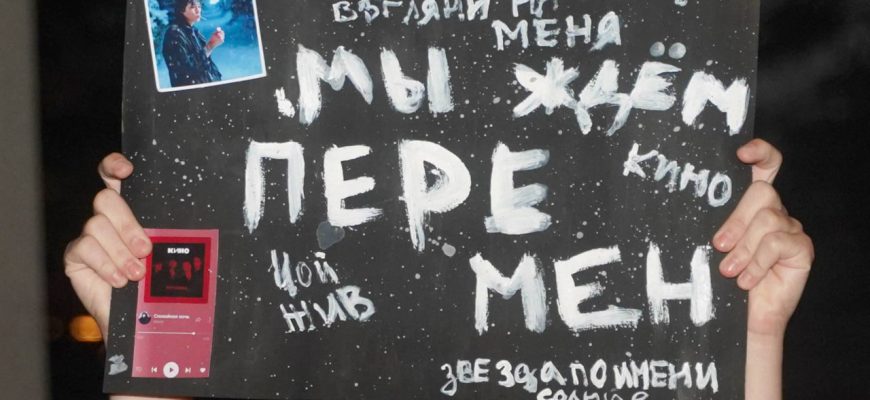 ВЗГЛЯНИ НА
МЕНЯ
МЫ ЖДЁМ
ПЕРЕ
МЕН
КИНО
ЦОЙ
ЖИВ
КИНО
Спокойная ночь
ЗВЕЗДА ПО ИМЕНИ
СОЛНЦЕ